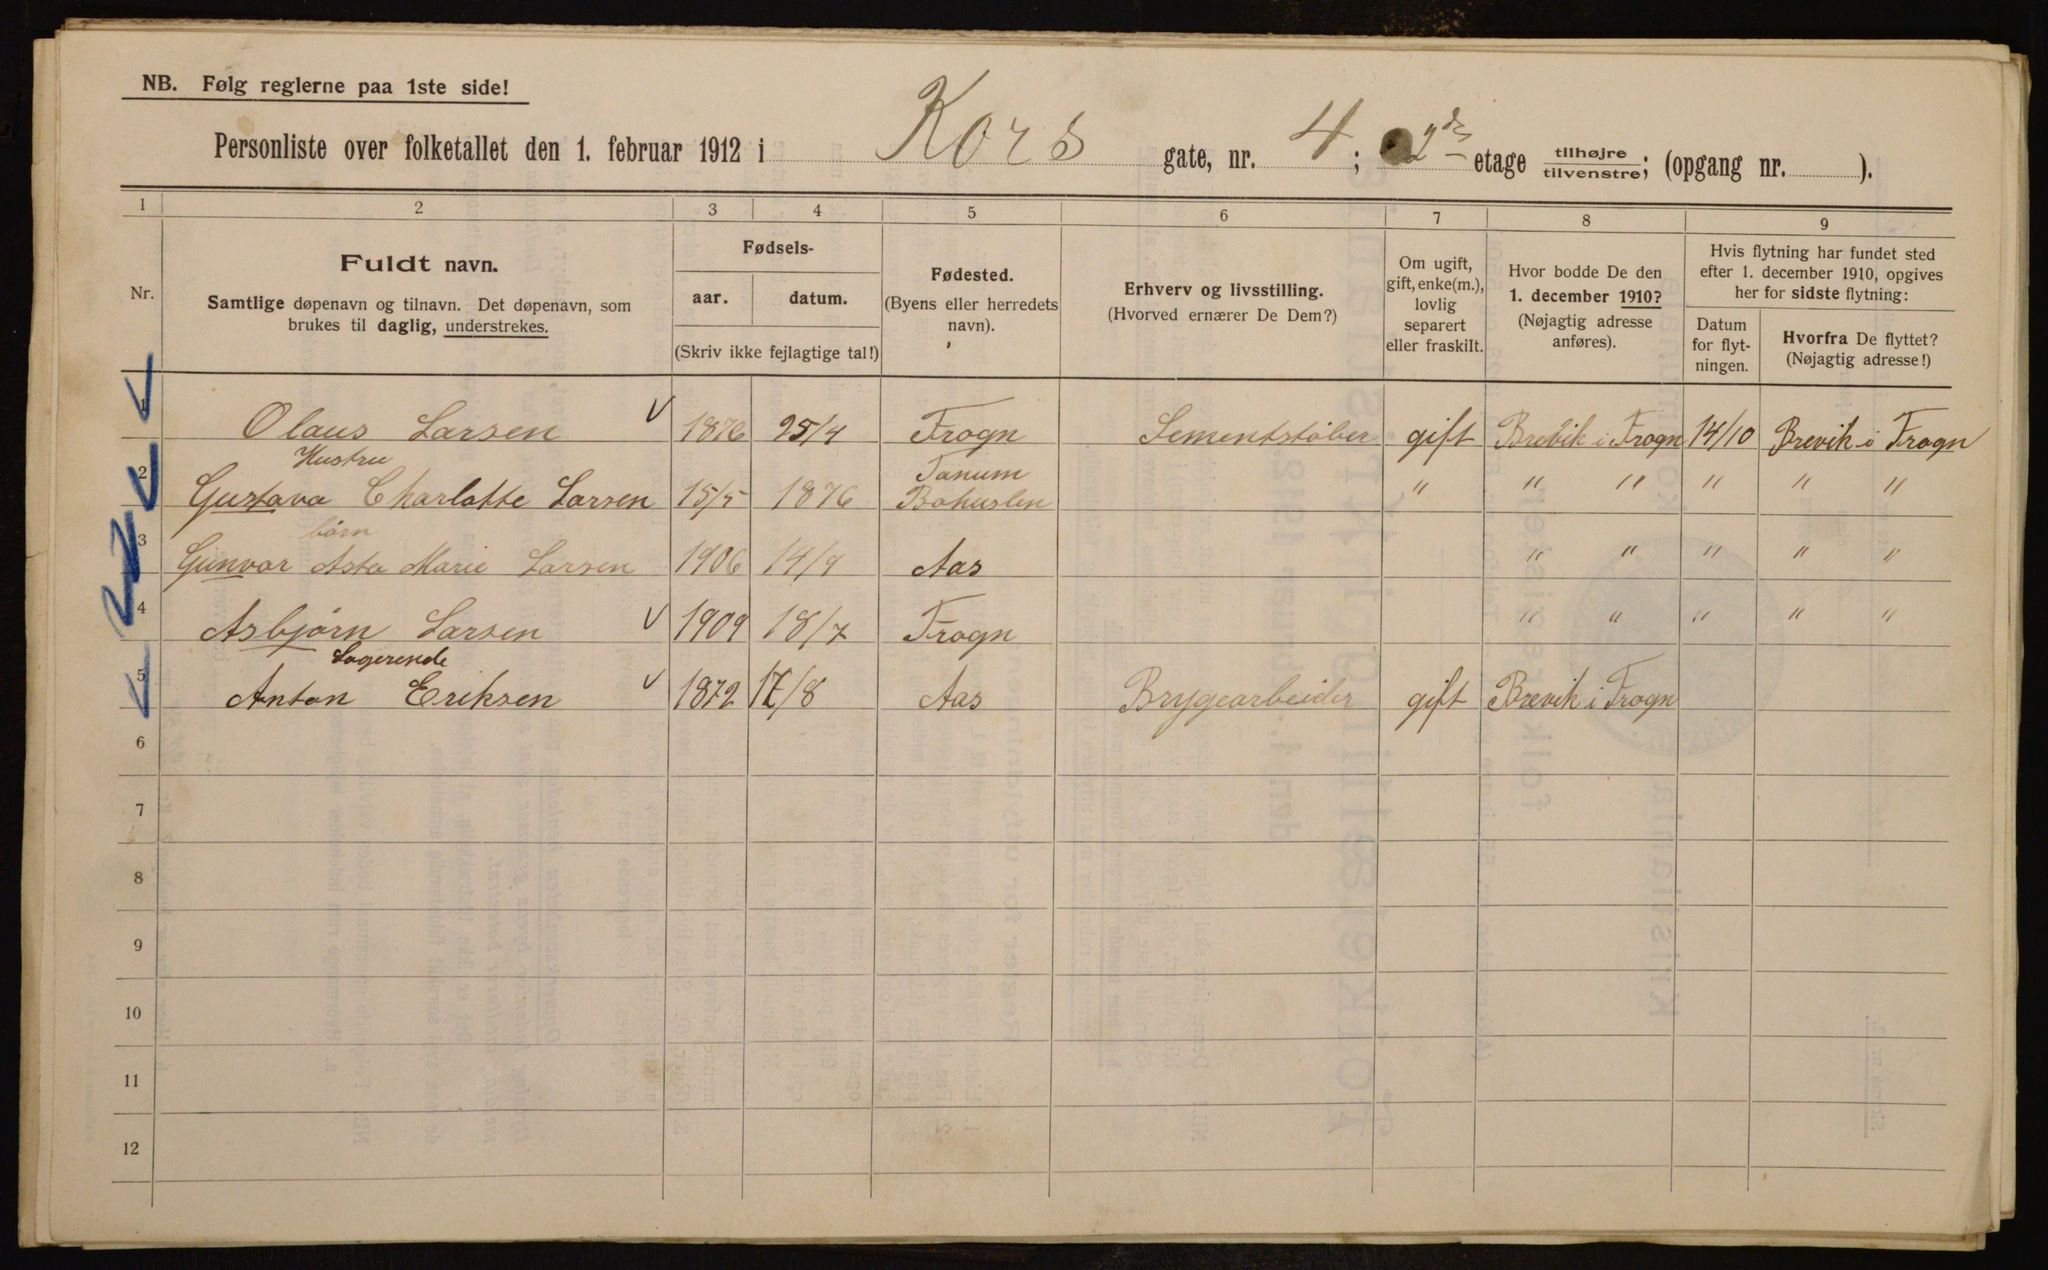 NB. Følg reglerne paa 1ste side!
Personliste over folketallet den 1. februar 1912 i Kors gate, nr. 4; 2den etage tilhøjre tilvenstre; (opgang nr. ).
1 2 3 4 5 6 7 8 9
Nr.
Fuldt navn.
Samtlige døpenavn og tilnavn. Det døpenavn, som
brukes til daglig, understrekes.
Fødsels-
aar. datum.
(Skriv ikke fejlagtige tal!)
Fødested.
(Byens eller herredets
navn).
Erhverv og livsstilling.
(Hvorved ernærer De Dem?)
Om ugift,
gift, enke(m.),
lovlig
separert
eller fraskilt.
Hvor bodde De den
1. december 1910?
(Nøjagtig adresse
anføres).
Hvis flytning har fundet sted
efter 1. december 1910, opgives
her for sidste flytning:
Datum
for flyt-
ningen.
Hvorfra De flyttet?
(Nøjagtig adresse!)
1 Olaus Larsen 1876 25/4 Frogn Sementstøber gift Brevik i Frogn 14/10 Brevik i Frogn
Hustru Tanum
2 Gustava Charlotte Larsen 15/5 1876 Bohuslen " " " " " "
børn
3 Gunvor Asta Marie Larsen 1906 14/9 Aas " " " " "
4 Asbjørn Larsen 1909 18/7 Frogn " " " " "
Logerende
5 Anton Eriksen 1872 17/8 Aas Brygearbeider gift Brevik i Frogn
6
7
8
9
10
11
12